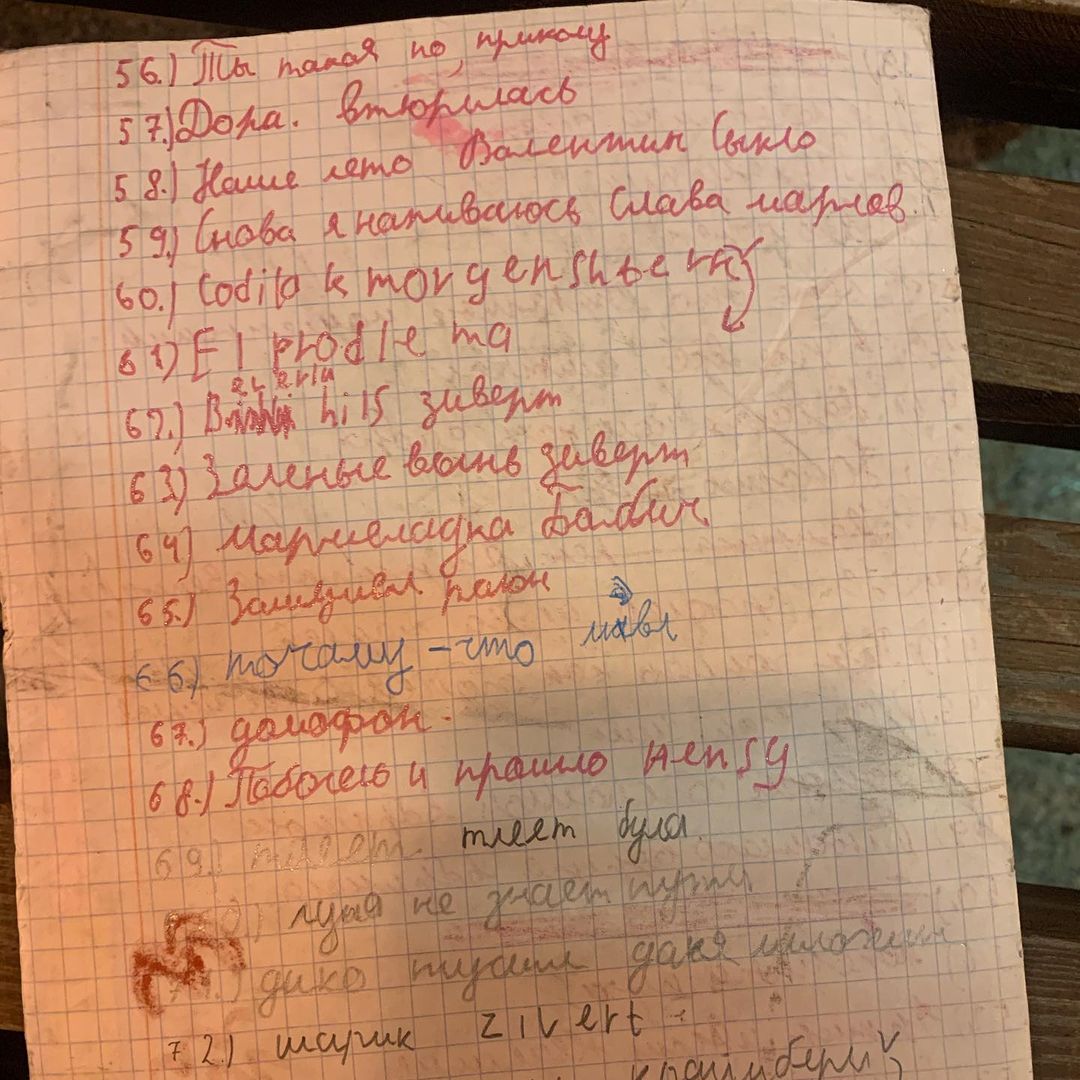 56.) Ты такая по приколу
57.) Дора. втюрилась
58.) Наше лето Валентин Сыкло
59.) Снова я напиваюсь Слава марлов.
60.) Cadilak morgenshtern
61) El problema
62.) Beverly hils зиверт
63) Зеленые волны зиверт
64) мармеладка Бабич
65.) Замыкая район
66) почему-что
67.) домофон.
68.) Поболею и прошло hensy
69.) тлеет тлеет була
) луна не знает пути
.) дико тусим даня милохин
72.) шарик zivert